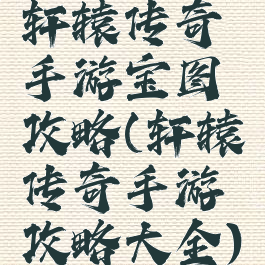 轩辕传奇
手游宝图
攻略(轩辕
传奇手游
攻略大全)